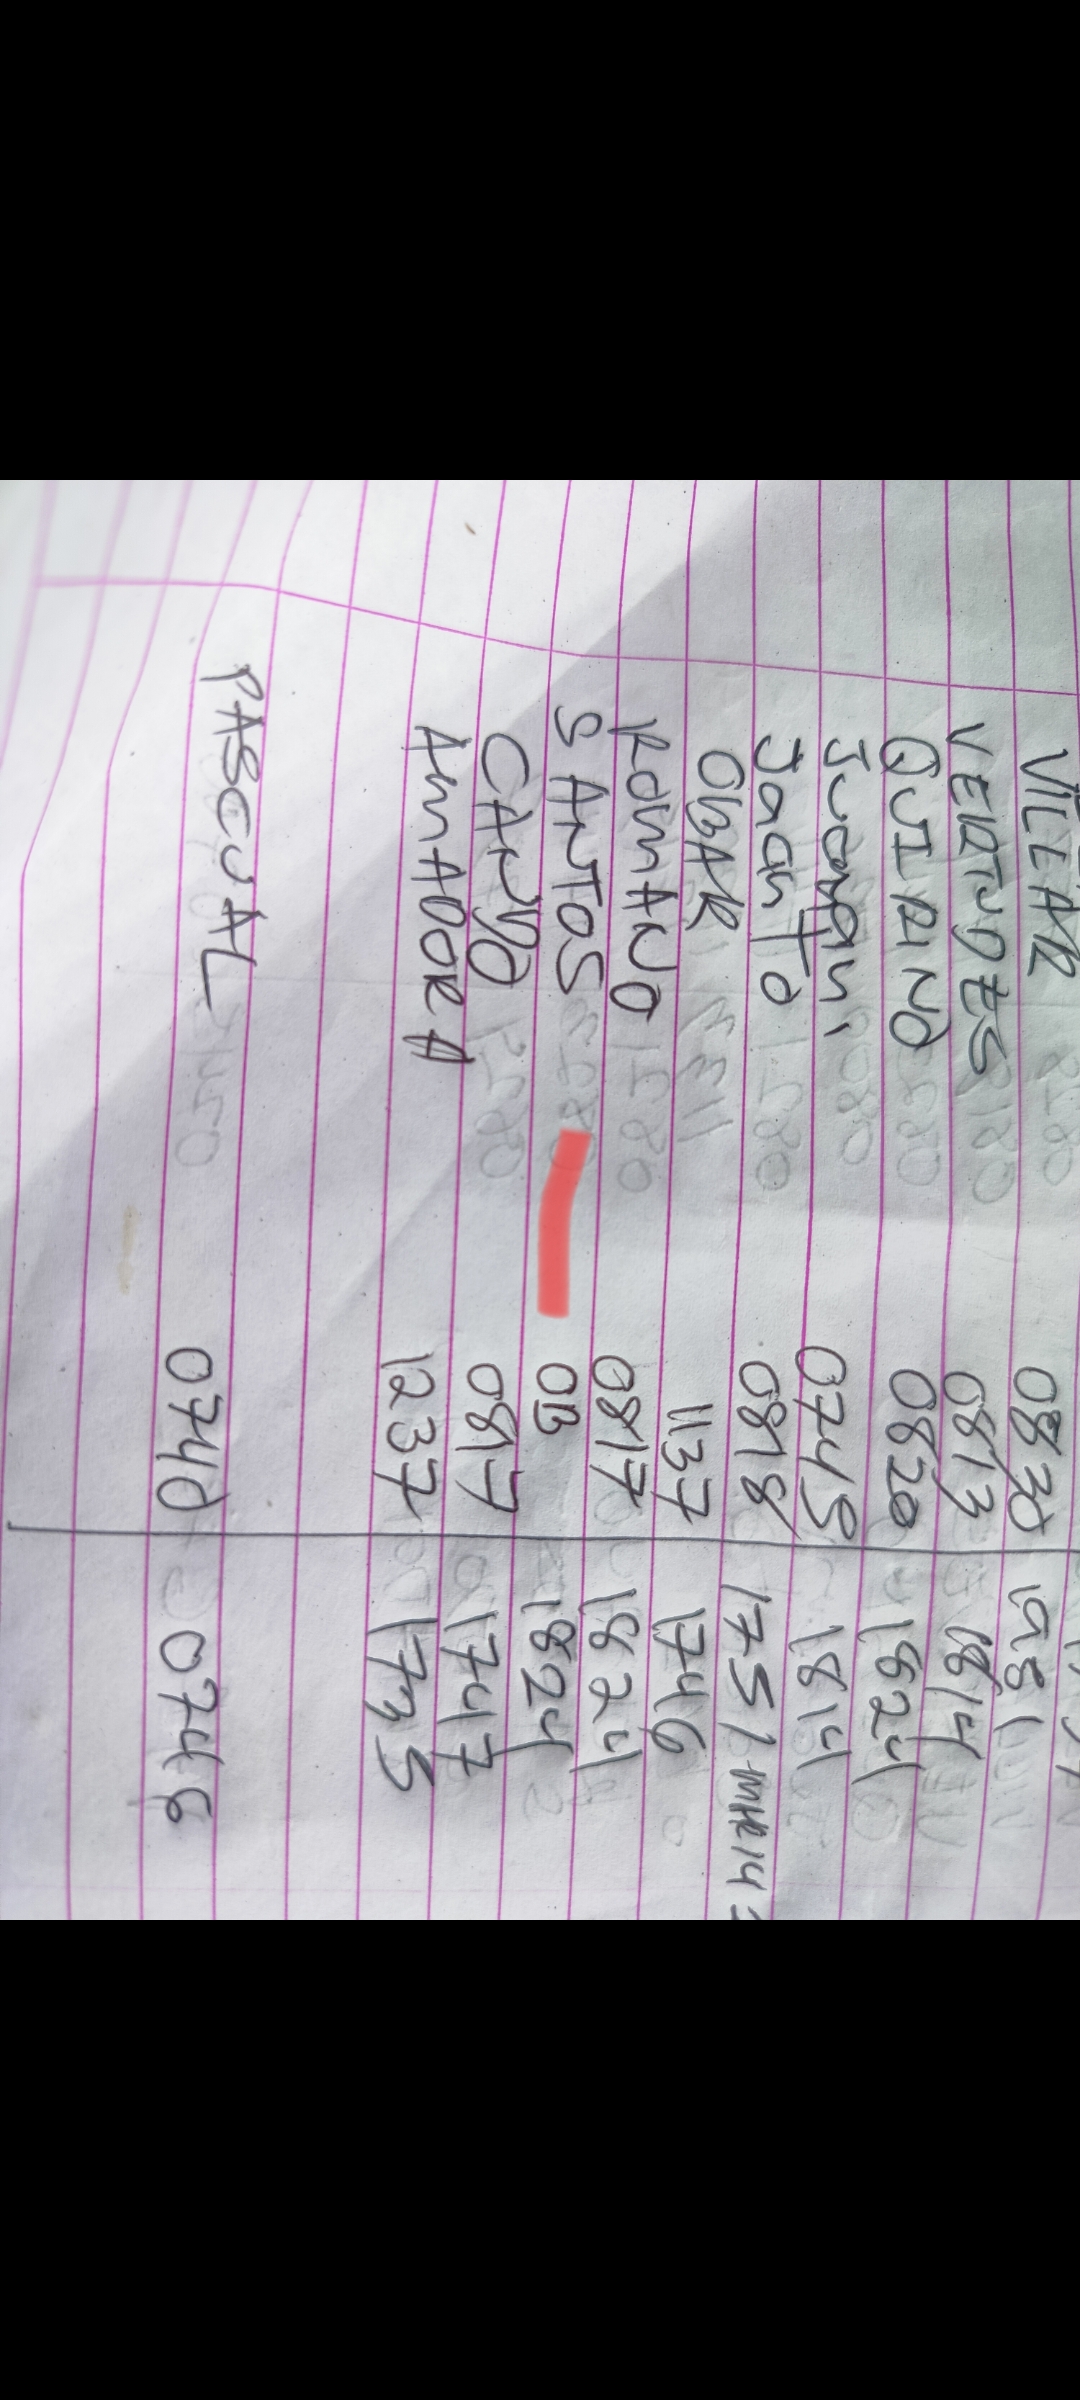 VILLAR 0830 1981
VERTUDES 0813 1814
QUIRINO 0820 1824
Jucoman, 0745 1814
JacinTo 0818 1751 MHR14
OBAR 1137 1746
ROMANO 0817 1824
SANTOS OB 1824
CANYO 0817 1747
AMADORA 1237 1735
PASCUAL 0740 0746